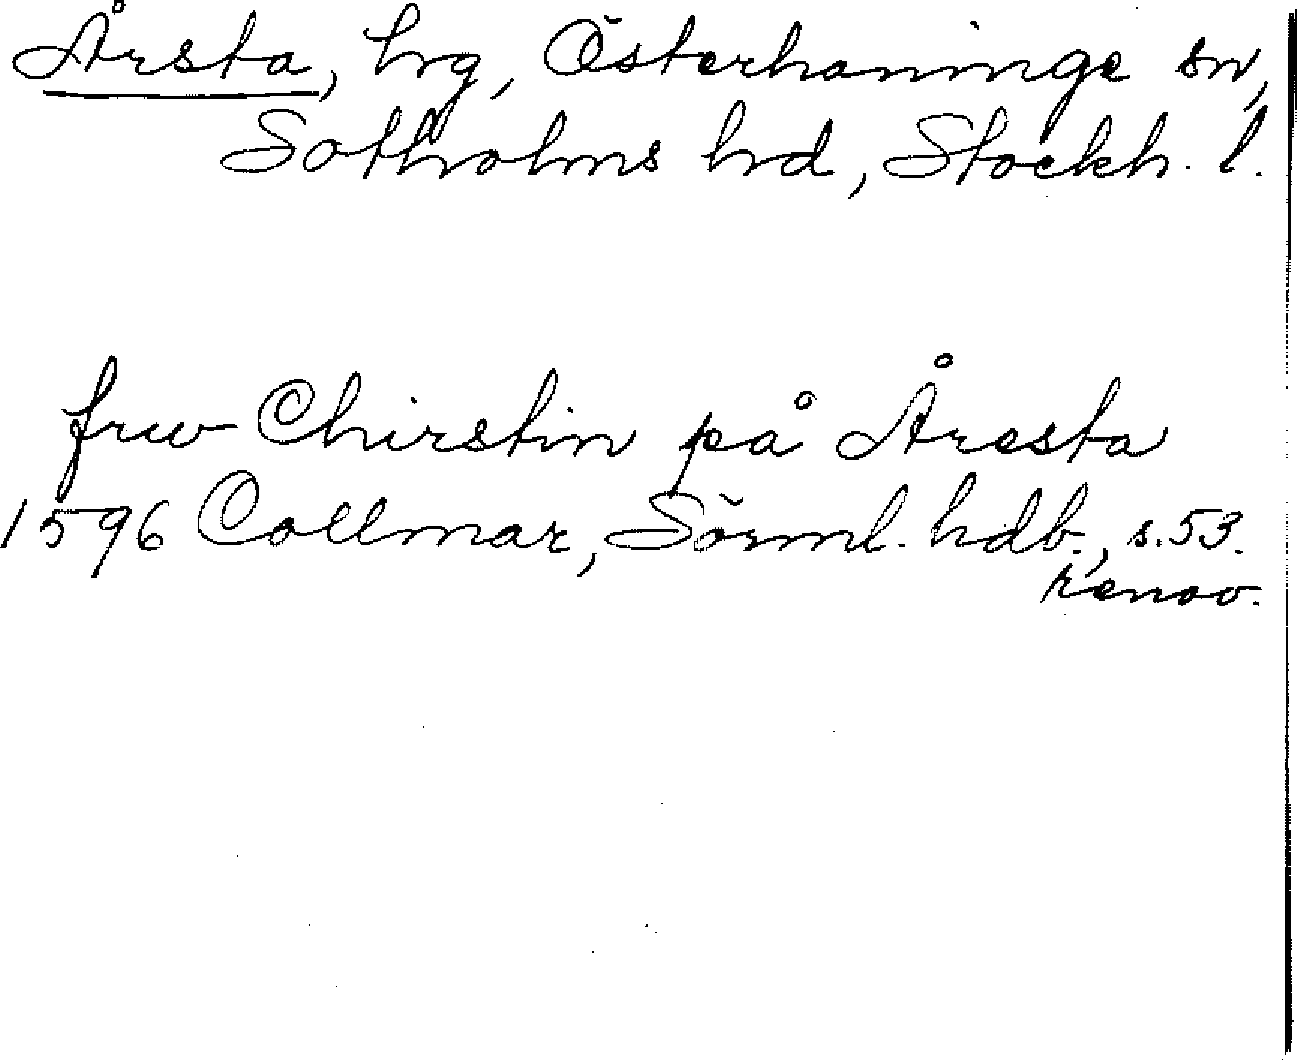 Årsta, hrg, Österhaninge sn,
Sotholms hrd, Stockh. l.
frw Chirstin på Åresta
1596 Collmar, Sörml. hdb., s. 53.
renov.